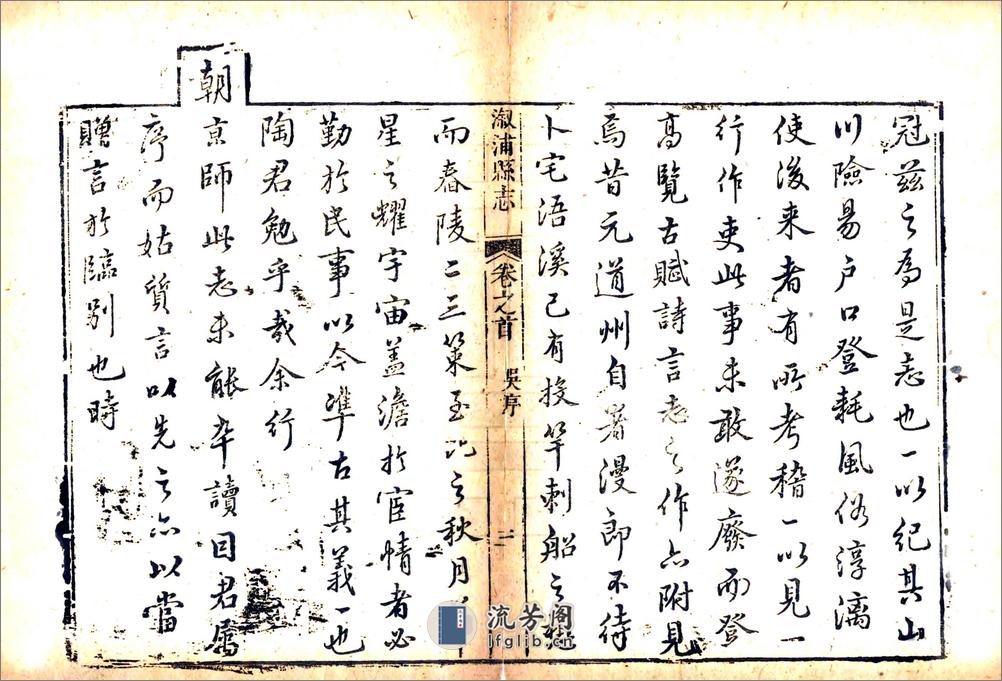 冠茲之為是志也一以紀其山
川險易戶口登耗風俗淳漓
使後来者有所考稽一以見一
行作吏此事未敢遂廢而登
髙覽古賦詩言志之作亦附見
焉昔元道州自著漫郎不待
卜宅浯溪已有投竿刺船之
溆浦縣志
卷之首
吳序
二
而舂陵二三策至比之秋月
星之耀宇宙蓋澹於宦情者必
勤於民事以今準古其義一也
陶君勉乎哉余行
朝
京師此志未能卒讀因君屬
序而姑質言以先之亦以當
贈言於臨别也時
流芳阁
jfglib.cn